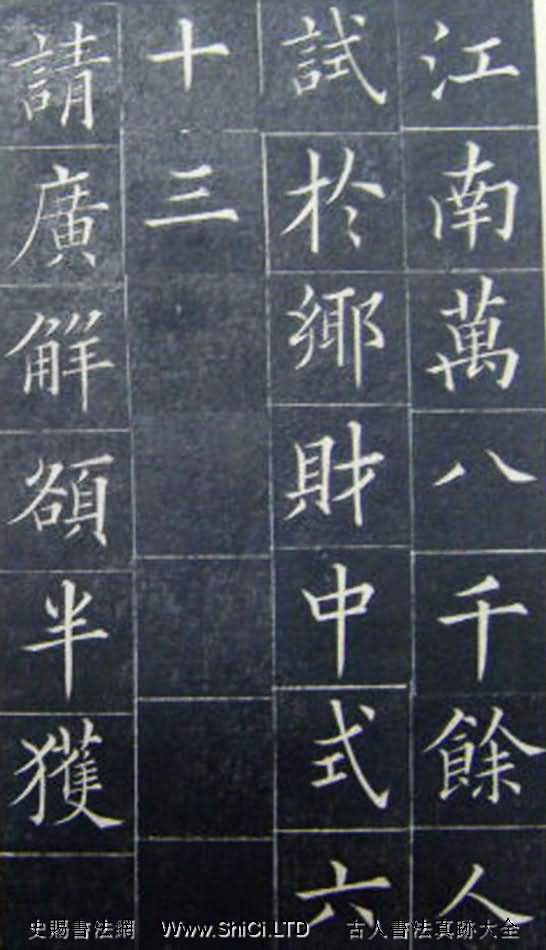 江南萬八千餘人
試於鄉財中式六
十三
請廣解額半獲
史賜書法網 Www.ShiCi.LTD 古人書法真跡大全